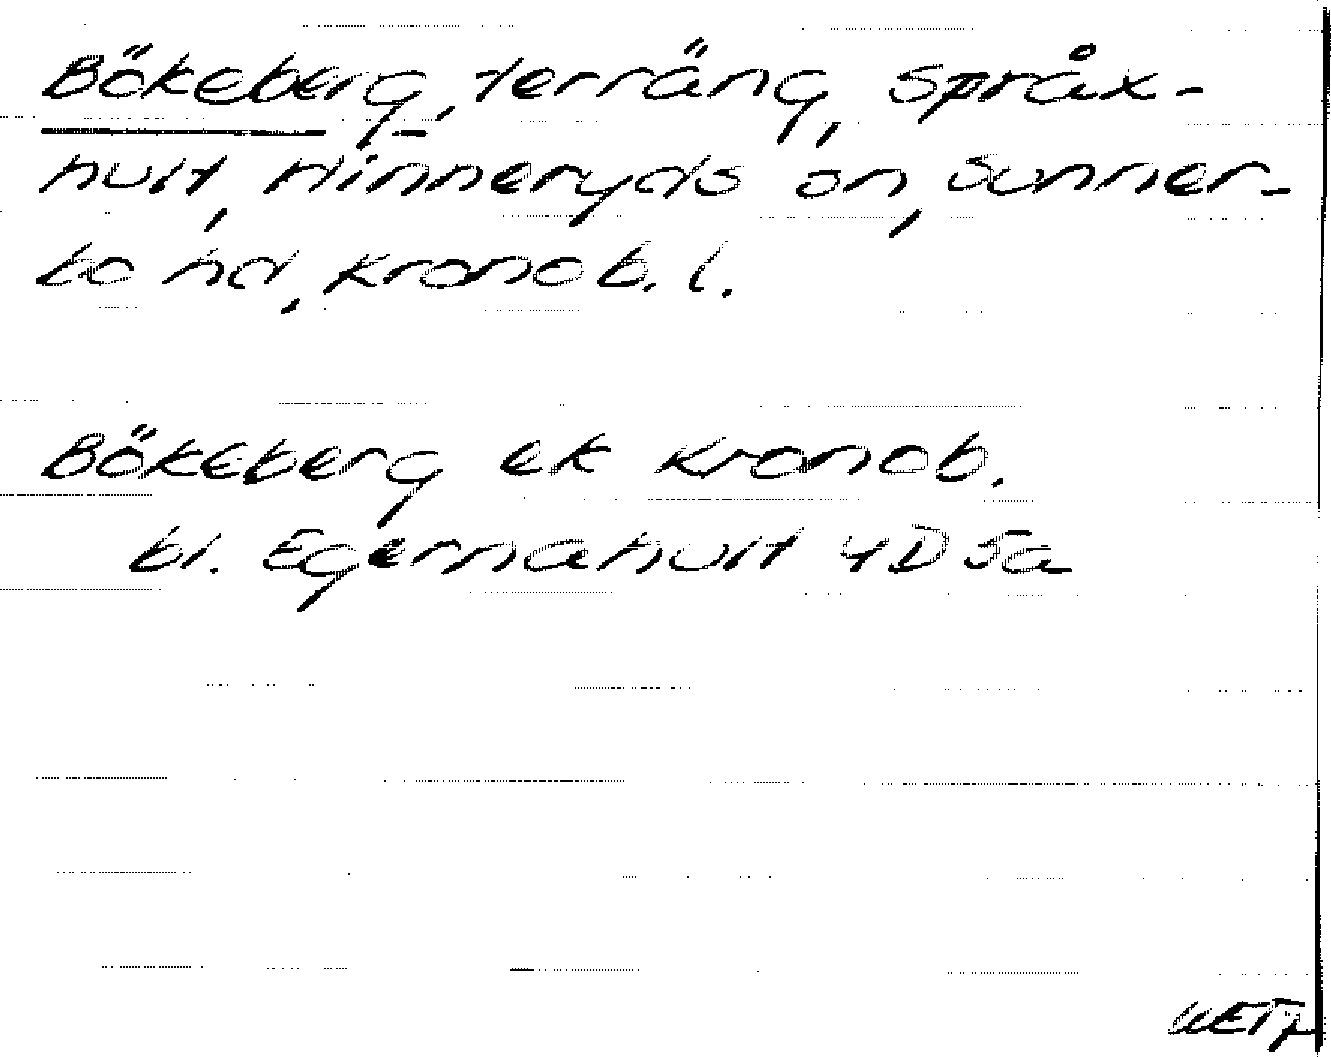 Bökeberg, terräng, Språx-
hult, Hinneryds sn, Sunner-
bo hd, Kronob. l.
Bökeberg ek Kronob.
bl. Egernahult 4D 5a